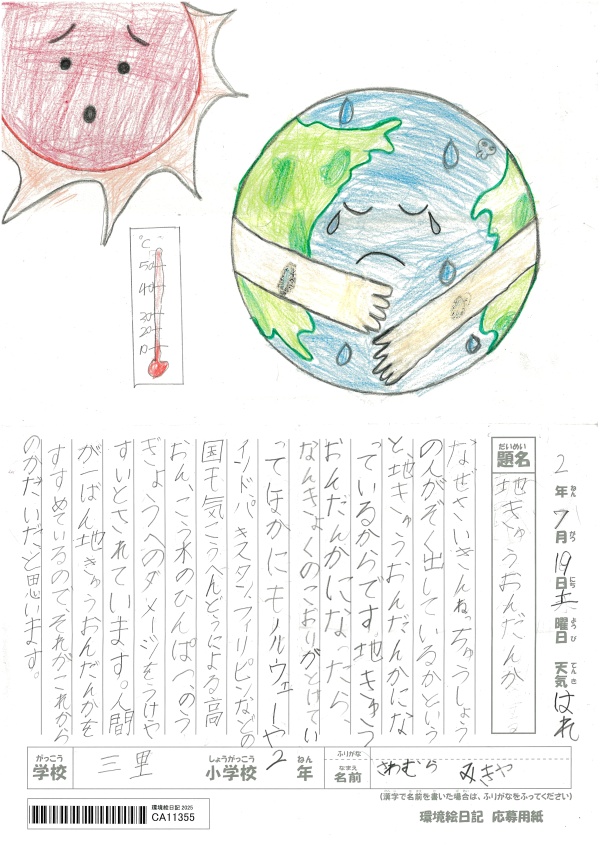 ℃
50
40
30
20
10
2年7月19日土曜日 天気はれ
ねん がつ にち ようび てんき
だいめい
題名
地きゅうおんだんか
なぜさいきんねっちゅうしょう
のんがぞく出しているかという
と、地きゅうおんだんかにな
っているからです。地きゅう
おんだんかになったら、
なんきょくのこおりがとけてい
ってほかにもノルウェーや
インドパキスタン、フィリピンなどの
国も気こうへんどうによる高
おん、こう水のひんぱつへのう
ぎょうへのダメージをうけや
すいとされています。人間
が一ばん地きゅうおんだんかを
すすめているので、それがこれから
のかだいだと思います。
がっこう しょうがっこう ねん ふりがな
学校 三里 小学校 2年
なまえ
名前 さわむら みきや
(漢字で名前を書いた場合は、ふりがなをふってください)
環境絵日記 2025
CA11355
環境絵日記 応募用紙